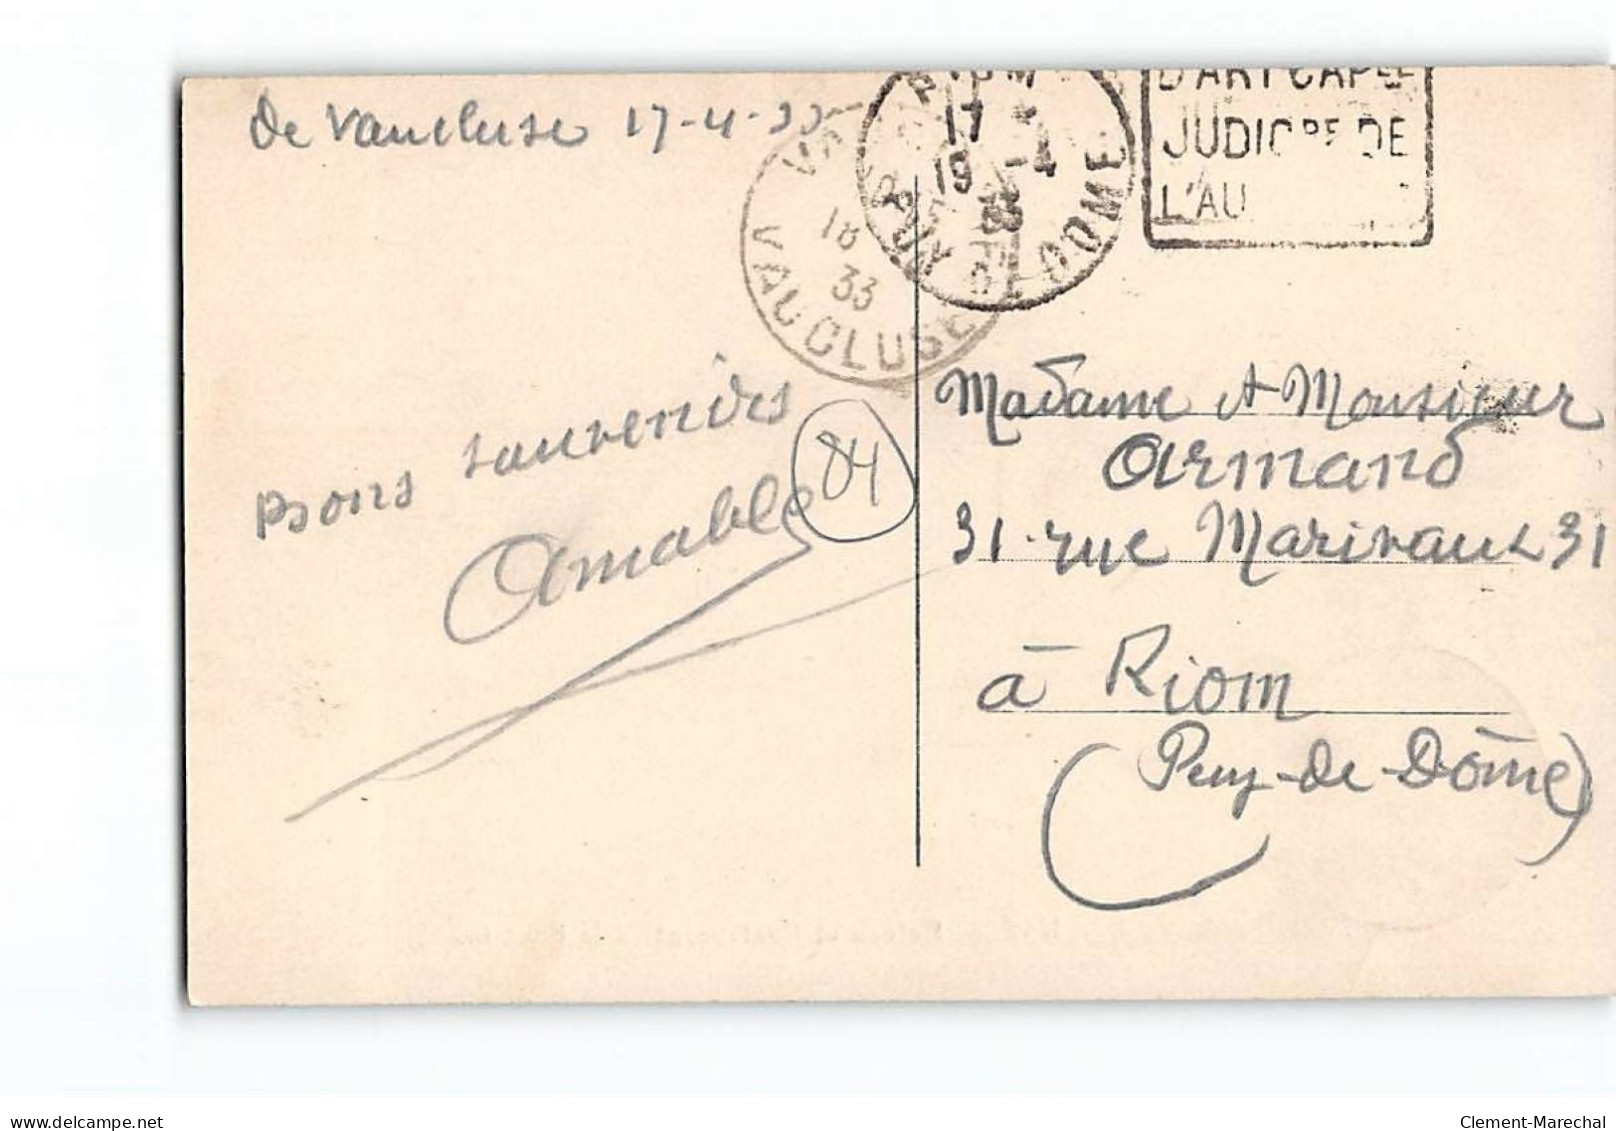 de Vaucluse 17-4-33
VAUCLUSE
18
33
RIOM
17
19 -4
33
PUY DE DOME
D'ART CAPLE
JUDICRE DE
L'AU
Bons souvenirs
Amable
84
Madame et Monsieur
Armand
31 - rue Marivaux 31
à Riom
(Puy-de-Dôme)
delcampe.net
Clement-Marechal